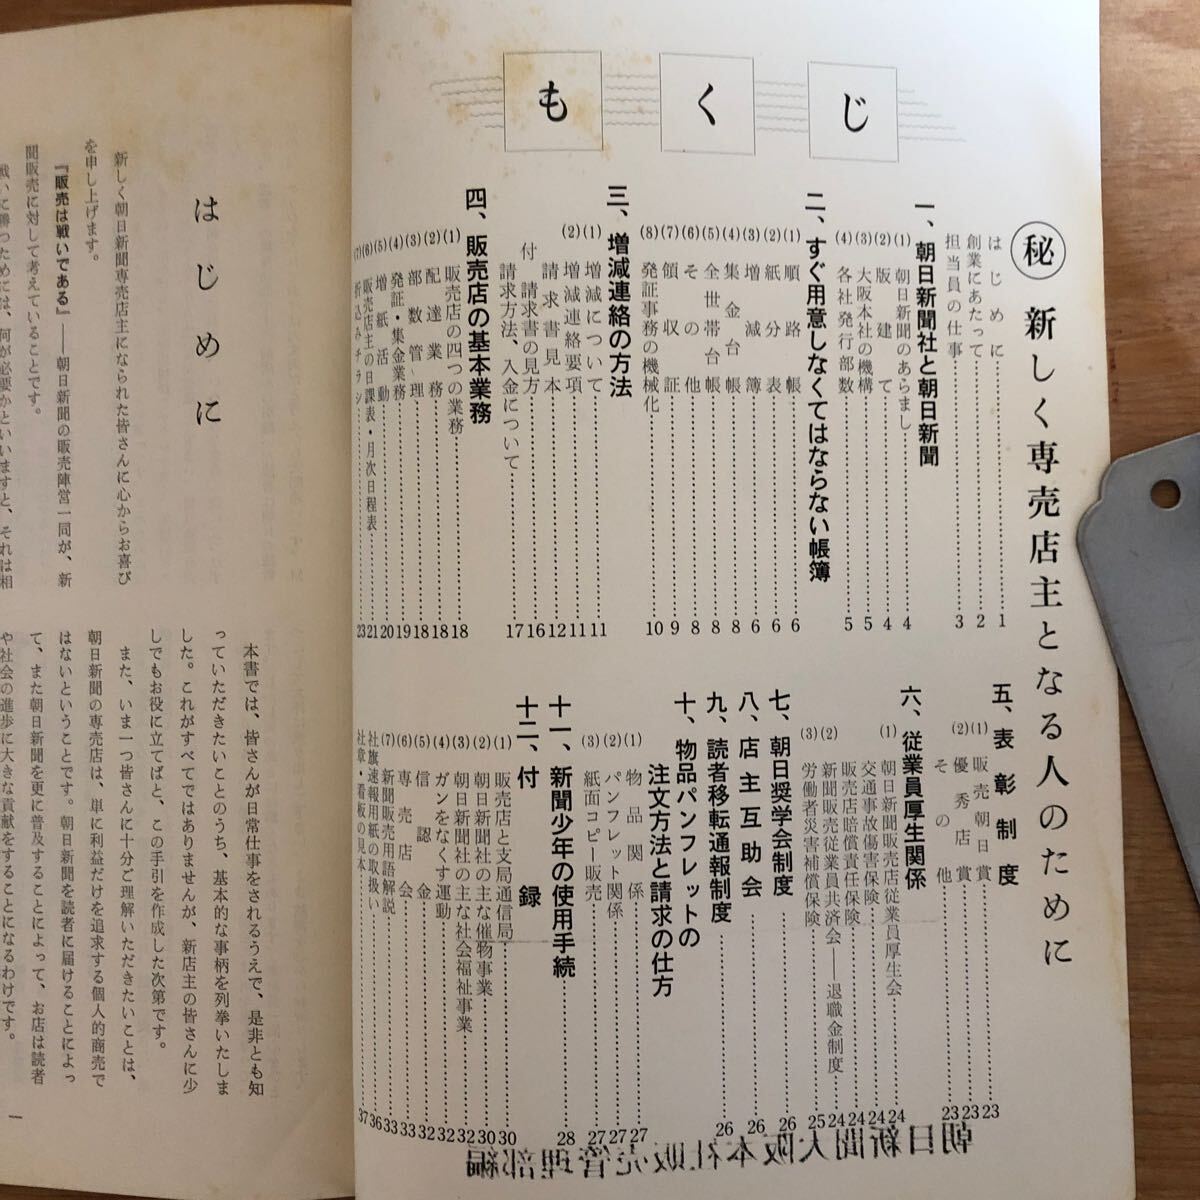 もくじ
㊙ 新しく専売店主となる人のために
はじめに……1
創業にあたって……2
担当員の仕事……3
一、朝日新聞社と朝日新聞
(1) 朝日新聞のあらまし……4
(2) 版建て……4
(3) 大阪本社の機構……5
(4) 各社発行部数……5
二、すぐ用意しなくてはならない帳簿
(1) 順路帳……6
(2) 紙分表……6
(3) 増減簿……6
(4) 集金台帳……8
(5) 全世帯台帳……8
(6) その他……8
(7) 領収証……9
(8) 発証事務の機械化……10
三、増減連絡の方法
(1) 増減について……11
(2) 増減連絡要項……11
請求書見本……12
付 請求書の見方……16
請求方法、入金について……17
四、販売店の基本業務
(1) 販売店の四つの業務……18
(2) 配達業務……18
(3) 部数管理……18
(4) 発証・集金業務……19
(5) 増紙活動……20
(6) 販売店主の日課表・月次日程表……21
(7) 折込みチラシ……23
五、表彰制度
(1) 販売朝日賞……23
(2) 優秀店賞……23
その他……23
六、従業員厚生関係
(1) 朝日新聞販売店従業員厚生会……24
交通事故傷害保険……24
販売店賠償責任保険……24
(2) 新聞販売従業員共済会――退職金制度……24
(3) 労働者災害補償保険……25
七、朝日奨学会制度……26
八、店主互助会……26
九、読者移転通報制度……26
十、物品パンフレットの
注文方法と請求の仕方
(1) 物品関係……27
(2) パンフレット関係……27
(3) 紙面コピー販売……27
十一、新聞少年の使用手続……28
十二、付録
(1) 販売店と支局通信局……30
(2) 朝日新聞社の主な催物事業……30
(3) 朝日新聞社の主な社会福祉事業……32
(4) ガンをなくす運動……32
(5) 信認金……32
(6) 専売店会……33
(7) 新聞販売用語解説……33
社旗速報用紙の取扱い……36
社章・看板の見本……37
朝日新聞大阪本社販売管理部編
はじめに
新しく朝日新聞専売店主になられた皆さんに心からお喜び
を申し上げます。
『販売は戦いである』――朝日新聞の販売陣営一同が、新
聞販売に対して考えていることです。
戦いに勝つためには、何が必要かといいますと、それは相
本書では、皆さんが日常仕事をされるうえで、是非とも知
っていただきたいことのうち、基本的な事柄を列挙いたしま
した。これがすべてではありませんが、新店主の皆さんに少
しでもお役に立てばと、この手引を作成した次第です。
また、いま一つ皆さんに十分ご理解いただきたいことは、
朝日新聞の専売店は、単に利益だけを追求する個人的商売で
はないということです。朝日新聞を読者に届けることによっ
て、また朝日新聞を更に普及することによって、お店は読者
や社会の進歩に大きな貢献をすることになるわけです。
一